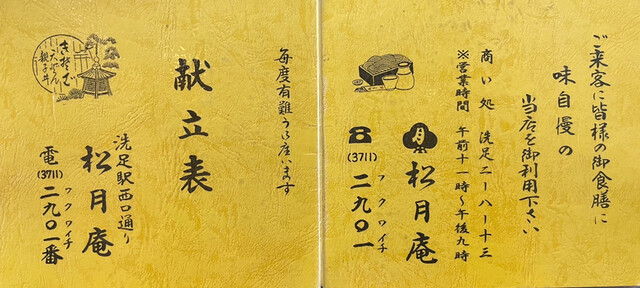 ご来客に皆様の御食膳に
味自慢の
当店を御利用下さい
商い処 洗足二ー八ー十三
※営業時間 午前十一時〜午後九時
月 松月庵
☎(3711) 二九〇一
フクワイチ
毎度有難うございます
献立表
きそば
天ぷら
親子丼
洗足駅西口通り
松月庵
フクワイチ
電(3711)二九〇一番